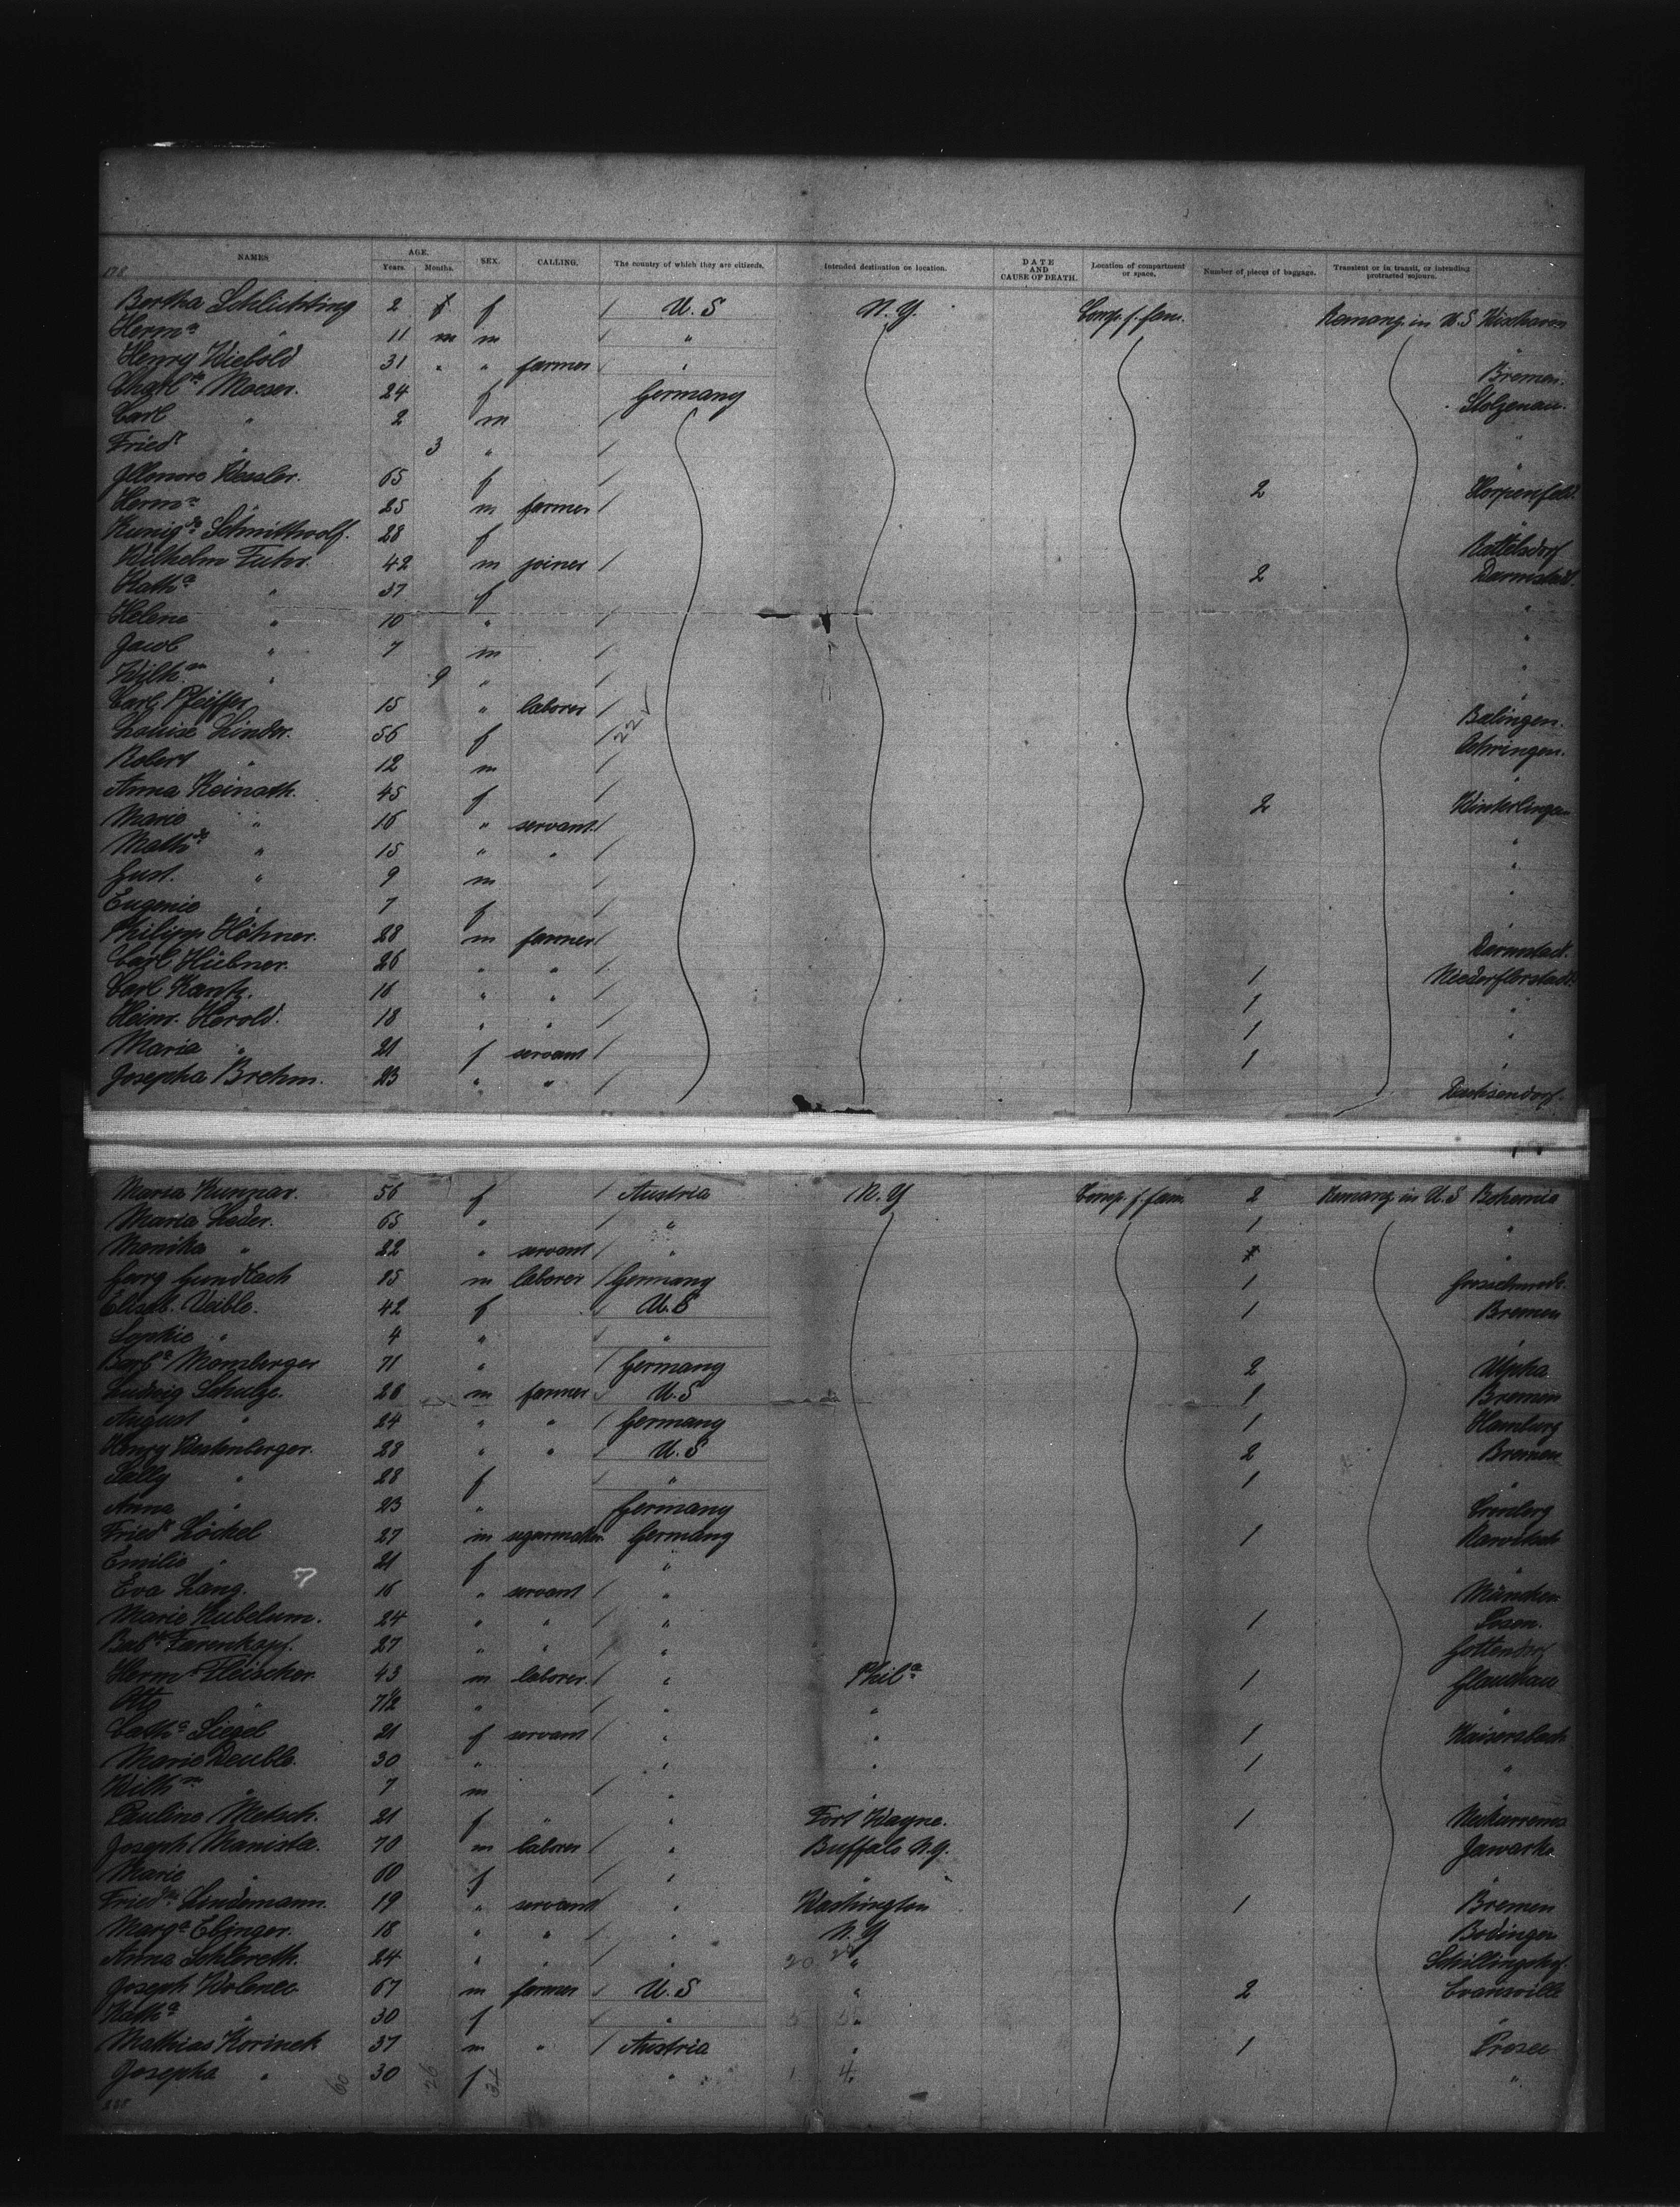 NAMES AGE. SEX. CALLING. The country of which they are citizens. Intended destination or location. DATE AND CAUSE OF DEATH. Location of compartment or space. Number of pieces of baggage. Transient or in transit, or intending protracted sojourn.
Years. Months.
Bertha Schlichting 2 f U. S N. Y. Comp. f. fam. Remang. in U. S
Herm.ⁿ " 11 m m "
Henry Wiebold 31 " " farmer " Bremen.
Charl.te Moeser. 24 f Germany Stolzenau.
Carl " 2 m "
Fried.r " 3 " "
Kessler. 65 f 2
Herm.n " 25 m farmer "
28 f Rattelsdorf
Wilhelm Fuhr. 42 m joiner 2 Darmstadt.
Kath.a " 37 f "
Helene " 10 " "
Jacob " 7 m "
Wilh.m " 9 " "
Carl Pfeiffer 15 " laborer Balingen.
Louise Linder. 56 f 22 Oehringen.
Robert " 12 m "
Anna Keinath. 45 f 2 Winterlingen
Marie " 16 " servant "
Math.de " 15 " " "
Gust. " 9 m "
Eugenie " 7 f "
Philipp Höhner. 28 m farmer Darmstadt.
Carl Hübner. 26 " " 1 Niederflorstadt.
Carl Kantz. 16 " " 1 "
Heinr. Herold. 18 " " 1 "
Maria " 21 f servant 1 "
Josepha Brehm. 23 " "
Maria Kunnar. 56 f Austria N. Y Comp. f. fam. 2 Remang. in U. S Bohemia
Maria Leder. 65 " " 1 "
Monika " 22 " servant " "
Georg Gundlach 15 m laborer Germany 1
Elisab. Veible. 42 f U. S 1 Bremen
Sophie " 4 " " "
Barb.a Momberger 71 " Germany 2 Ulpha
Ludwig Schulze. 26 m farmer U. S 1 Bremen
August " 24 " " Germany 1 Hamburg
Henry Westenberger. 28 " " U. S 2 Bremen
Sally " 28 f " 1 "
Anna " 23 " Germany Cronberg
Fried.r Löckel 27 m segarmaker Germany 1 Rawitsch
Emilie " 21 f " "
Eva Lang. 16 " servant " München
Marie Kubelum. 24 " " " 1 Posen.
Bab.te Farenkopf. 27 " " "
Herm.n Fleischer. 43 m laborer " Phil.a 1 Glauchau
Otto " 7½ " " " "
Cath.a Siegel 21 f servant " " 1 Kaisersbach
Marie Deuble. 30 " " " 1 "
Wilh.m " 7 m " "
Pauline Metsch. 21 f " " Fort Wayne. 1 Neckarrems
Joseph Manista. 70 m laborer " Buffalo N. Y.
Marie " 60 f " "
Fried.ke Lindemann. 19 " servant " Washington 1 Bremen
Marg.a Ebinger. 18 " " " N. Y Bodingen
Anna Schlereth. 24 " " " "
Joseph Wolenec 67 m farmer U. S " 2 Evansville
Kath.a " 30 f " " "
Mathias Korinek 37 m " Austria " 1 Prosec
Josepha " 30 f " " "
60 26 34